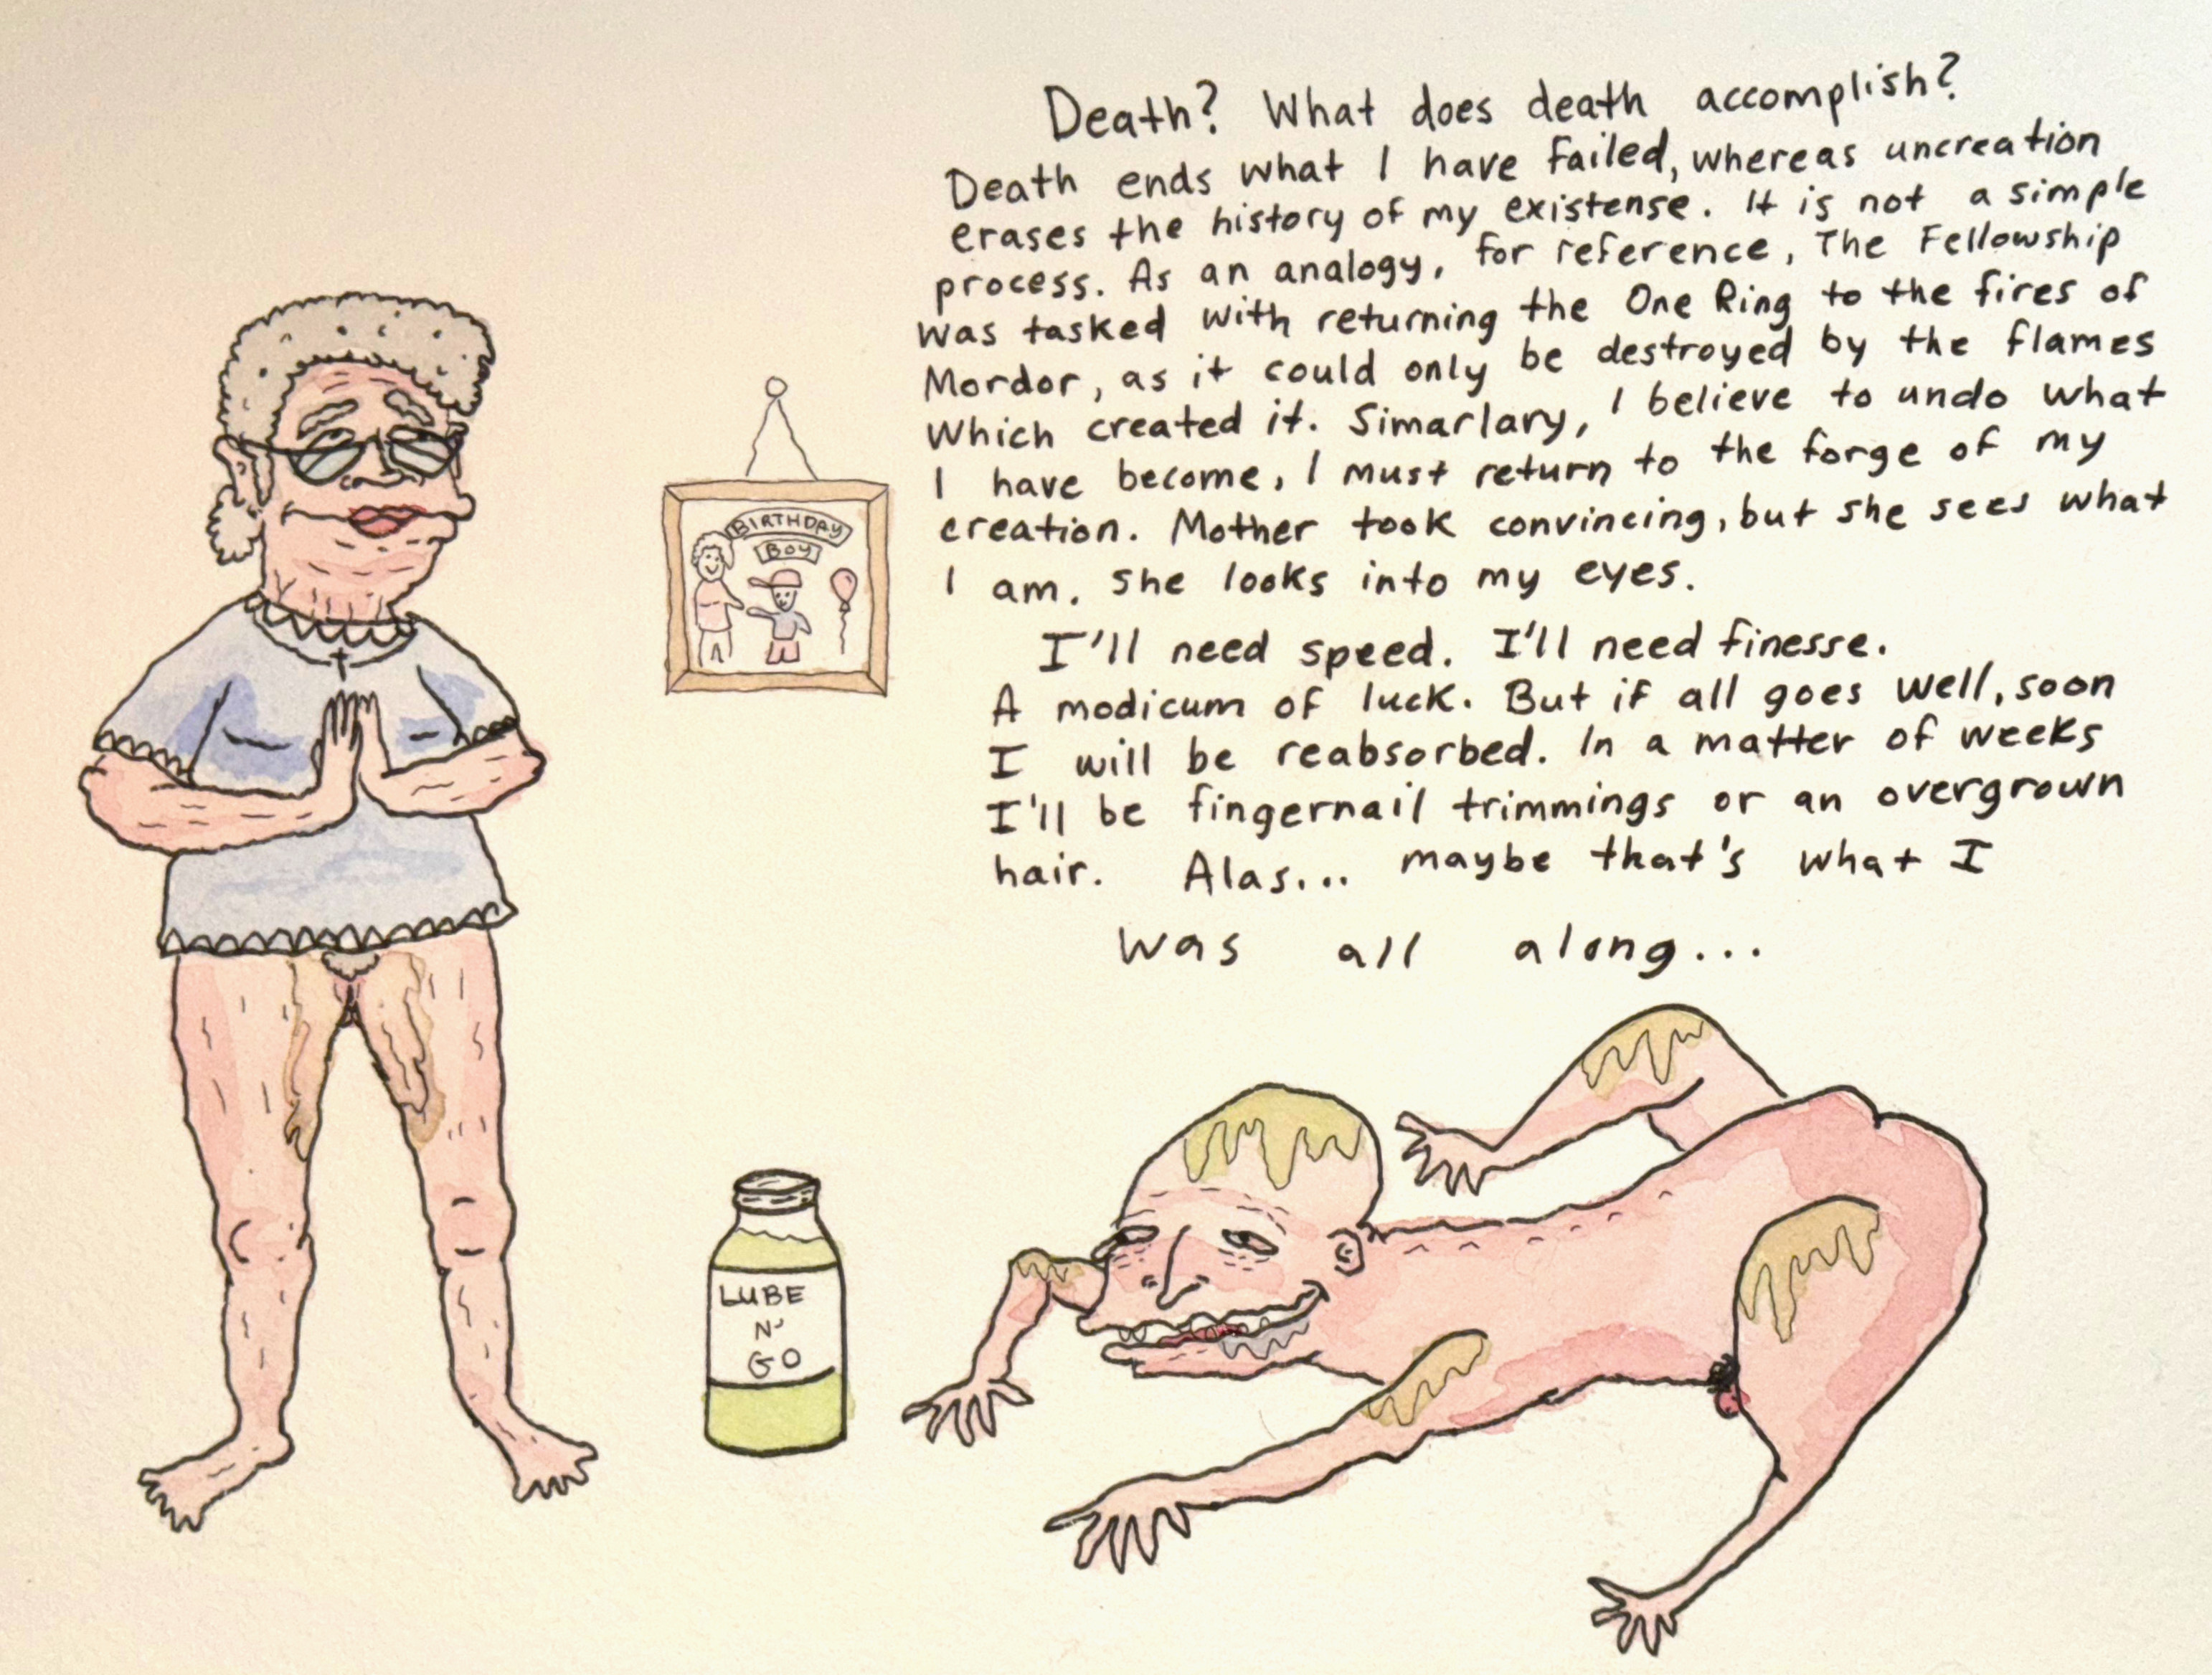 Death? What does death accomplish?
Death ends what I have failed, whereas uncreation
erases the history of my existense. It is not a simple
process. As an analogy, for reference, The Fellowship
was tasked with returning the One Ring to the fires of
Mordor, as it could only be destroyed by the flames
which created it. Simarlary, I believe to undo what
I have become, I must return to the forge of my
creation. Mother took convincing, but she sees what
I am. She looks into my eyes.
I'll need speed. I'll need finesse.
A modicum of luck. But if all goes well, soon
I will be reabsorbed. In a matter of weeks
I'll be fingernail trimmings or an overgrown
hair. Alas... maybe that's what I
was all along...
BIRTHDAY
BOY
LUBE
N'
GO